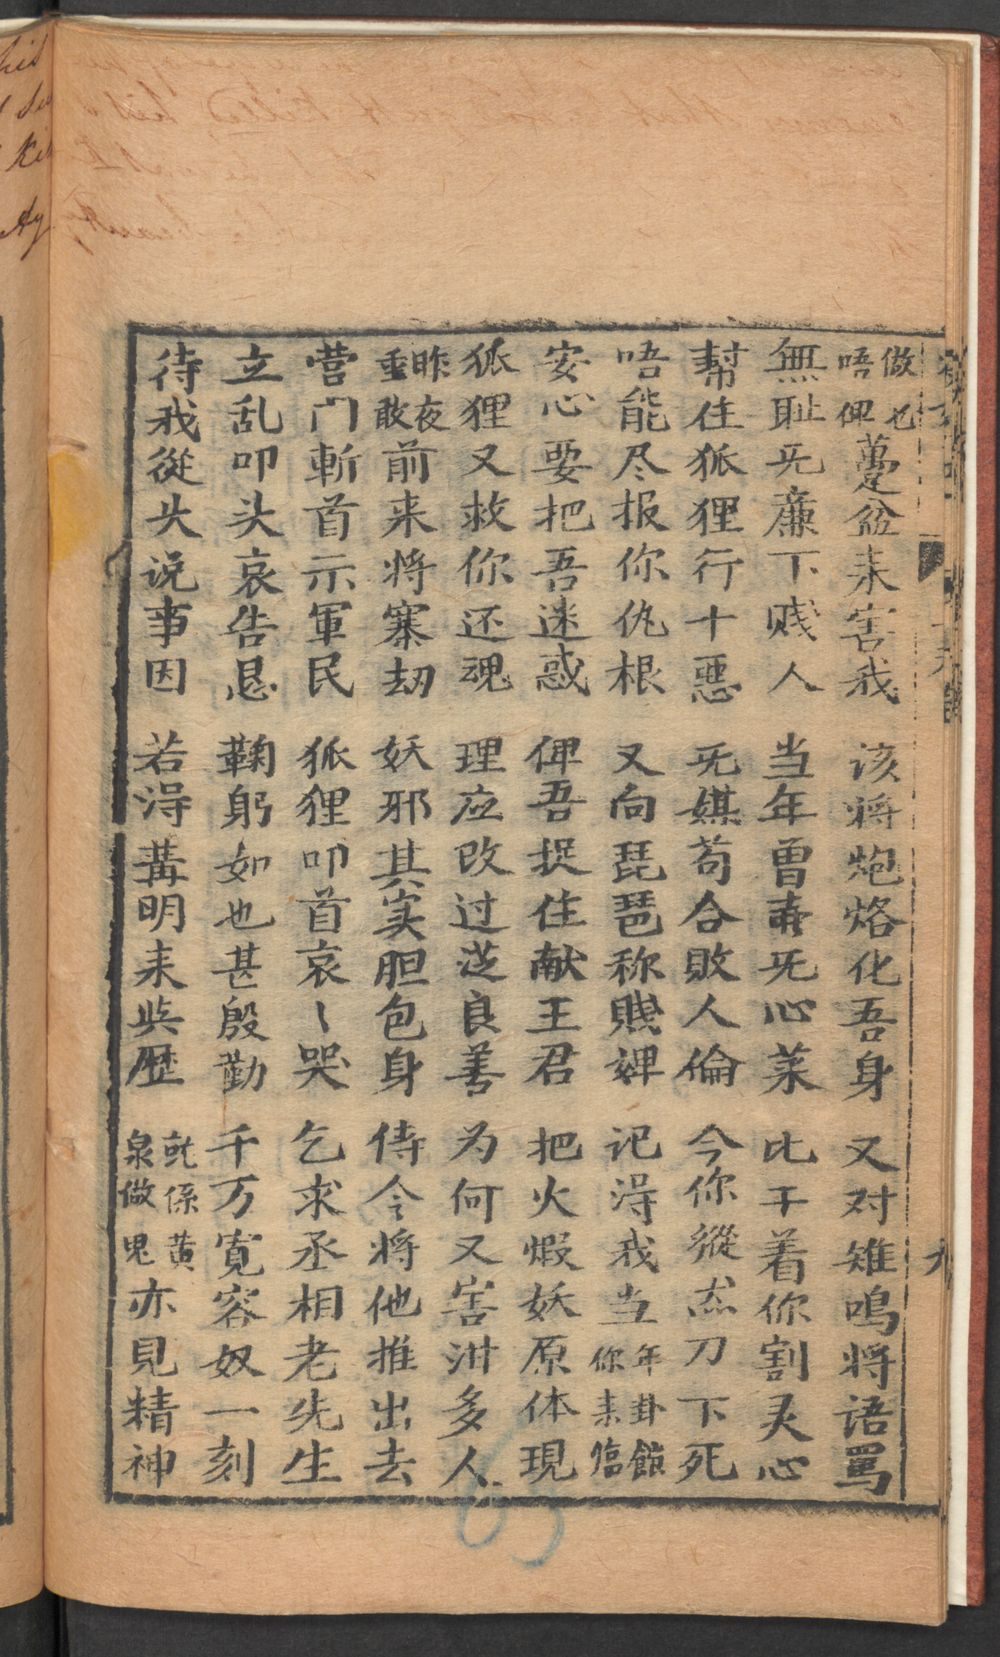 做乜唔俾躉盆来害我 该将炮烙化吾身 又对雉鳴将语骂
無耻无廉下贱人 当年曾吿无心菜 比干着你割灵心
幇住狐狸行十惡 无媒苟合败人倫 今你縱然刀下死
唔能尽报你仇根 又向琵琶称賤婢 记淂我当年卦館你来臨
安心要把吾迷惑 俾吾捉住献王君 把火煆妖原体現
狐狸又救你还魂 理应改过从良善 为何又害泔多人
昨夜重敢前来将寨劫 妖邪其实胆包身 侍令将他推出去
营门斬首示軍民 狐狸叩首哀〻哭 乞求丞相老先生
立乱叩头哀告恳 鞠躬如也甚殷勤 千万寬容奴一刻
待我從头说事因 若淂講明来与歷 就係黄泉做鬼亦見精神
九